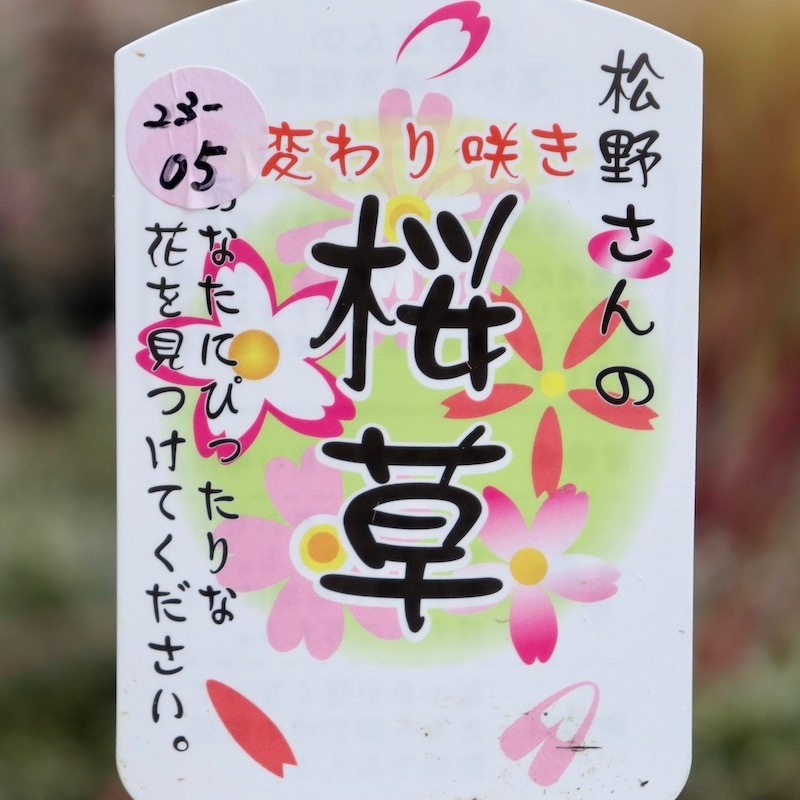 松野さんの
変わり咲き
桜草
あなたにぴったりな
花を見つけてください。
23-
05